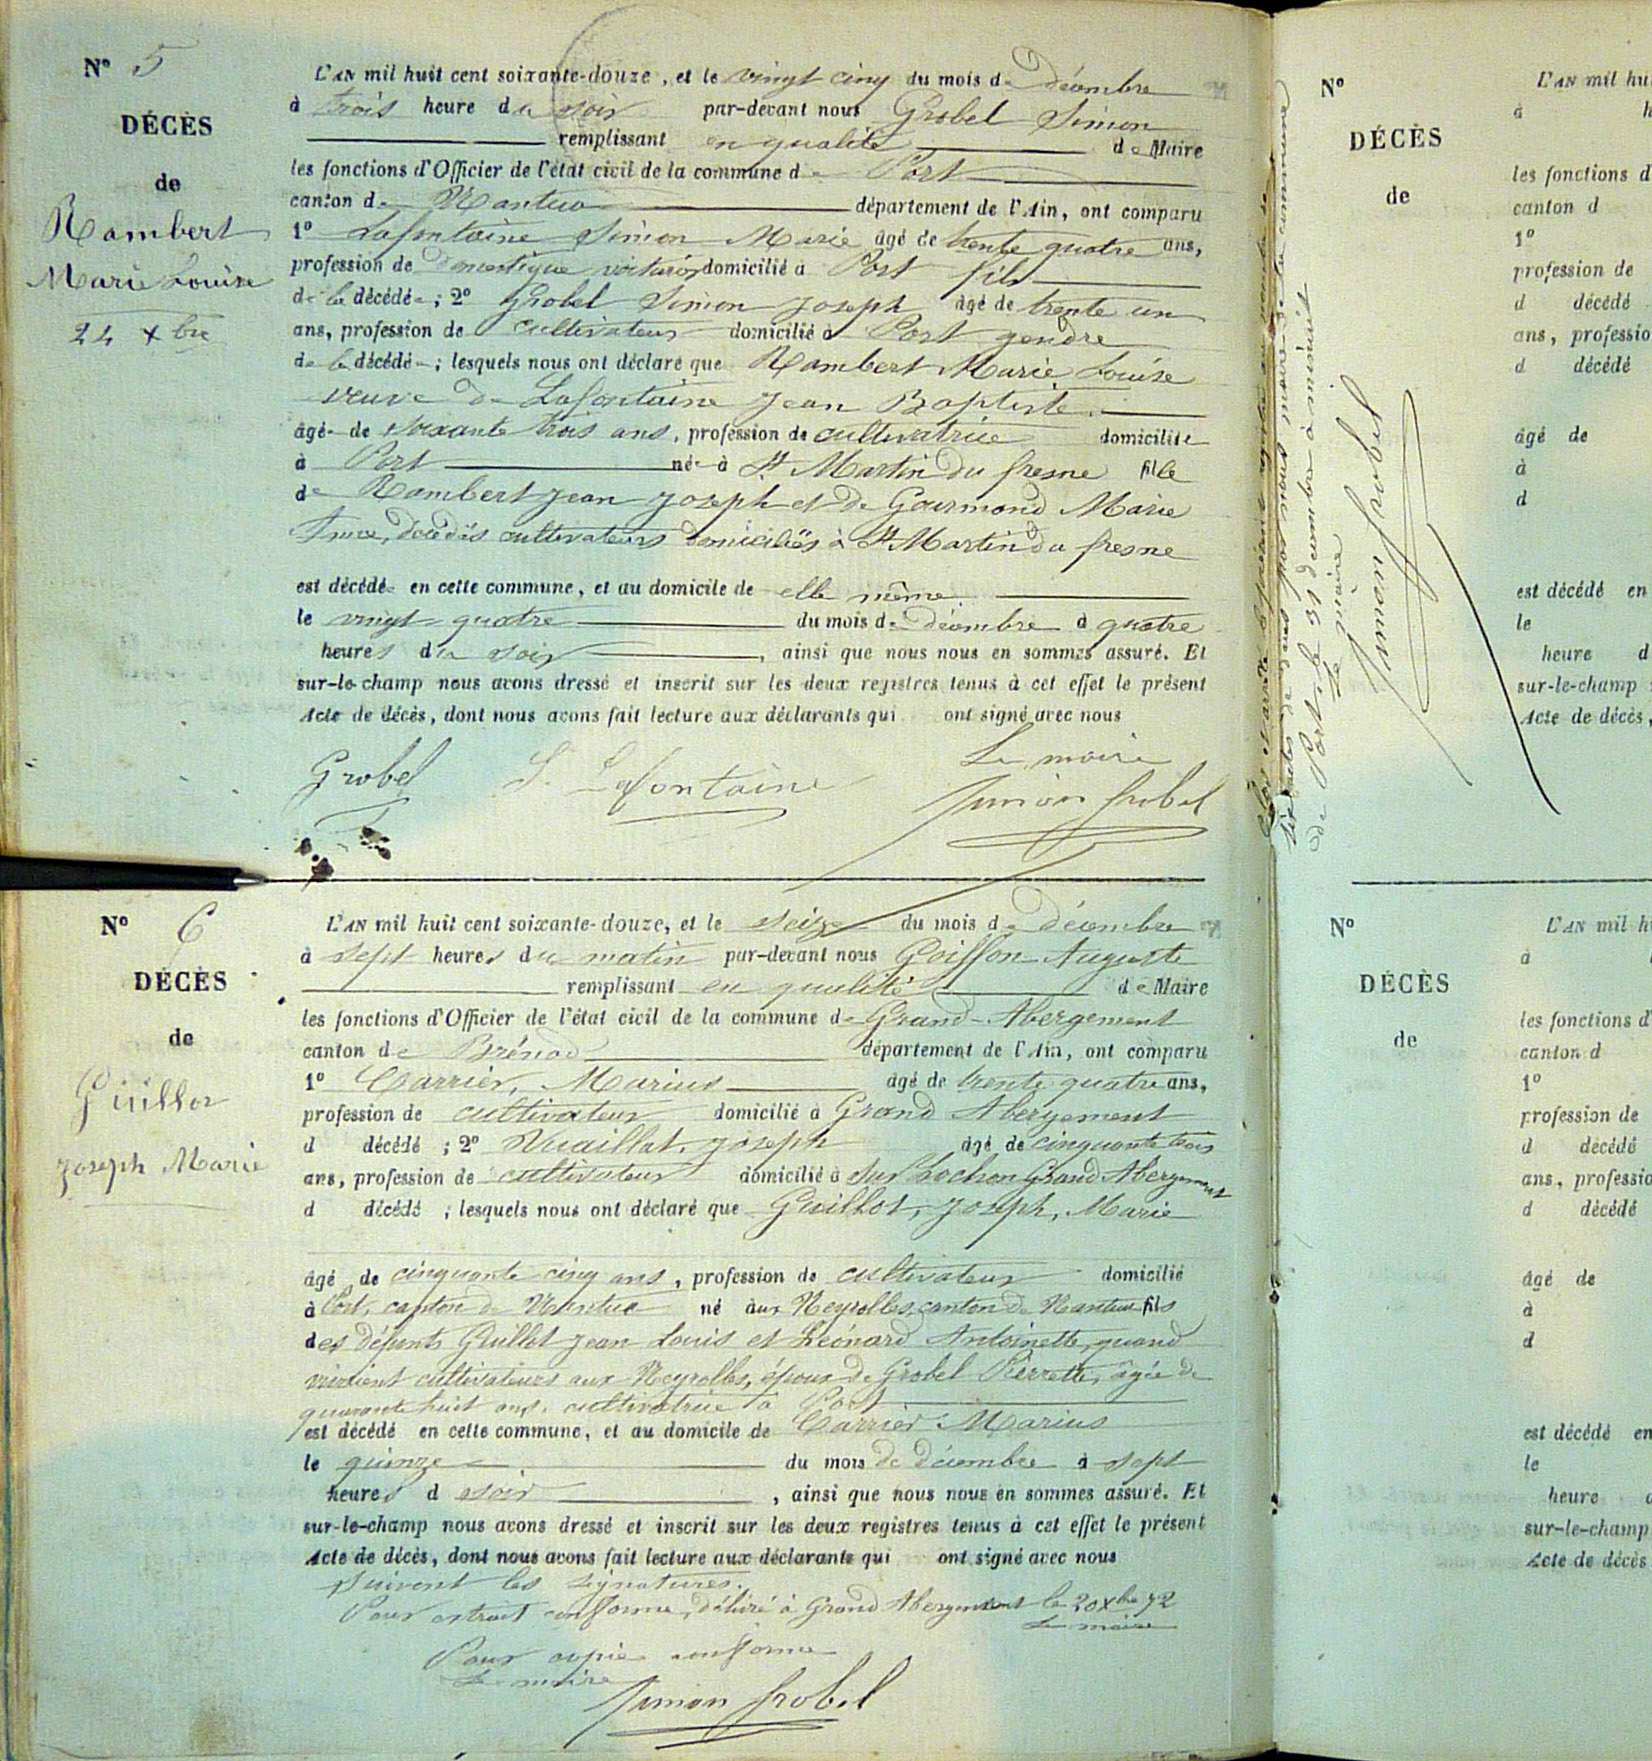 N° 5
DÉCÈS
de
Rambert
Marie Louise
24 xbre
L'AN mil huit cent soixante-douze, et le vingt cinq du mois de décembre
à trois heure du soir par-devant nous Grobel Simon
remplissant en qualité de Maire
les fonctions d'Officier de l'état civil de la commune de Port
canton de Nantua département de l'Ain, ont comparu
1° Lafontaine Simon Marie âgé de trente quatre ans,
profession de domestique voiturier domicilié à Port fils
de la décédée; 2° Grobel Simon Joseph âgé de trente un
ans, profession de cultivateur domicilié à Port gendre
de la décédée; lesquels nous ont déclaré que Rambert Marie Louise
veuve de Lafontaine Jean Baptiste
âgée de soixante trois ans, profession de cultivatrice domiciliée
à Port née à St Martin du fresne fille
de Rambert Jean Joseph et de Gourmond Marie
décédés cultivateurs domiciliés à St Martin du fresne
est décédée en cette commune, et au domicile de elle même
le vingt quatre du mois de décembre à quatre
heures du soir, ainsi que nous nous en sommes assuré. Et
sur-le-champ nous avons dressé et inscrit sur les deux registres tenus à cet effet le présent
Acte de décès, dont nous avons fait lecture aux déclarants qui ont signé avec nous
Le maire
Grobel S. Lafontaine Simon Grobel
N° 6
DÉCÈS
de
Guillot
Joseph Marie
L'AN mil huit cent soixante-douze, et le seize du mois de décembre
à sept heures du matin par-devant nous Goiffon Auguste
remplissant en qualité de Maire
les fonctions d'Officier de l'état civil de la commune de Grand-Abergement
canton de Brénod département de l'Ain, ont comparu
1° Carrier, Marius âgé de trente quatre ans,
profession de cultivateur domicilié à Grand Abergement
d décédé; 2° Vuaillat, Joseph âgé de cinquante trois
ans, profession de cultivateur domicilié à Sur Lochon Grand Abergement
d décédé; lesquels nous ont déclaré que Guillot, Joseph, Marie
âgé de cinquante cinq ans, profession de cultivateur domicilié
à Port, canton de Nantua né aux Neyrolles, canton de Nantua fils
des défunts Guillot Jean Louis et Léonard Antoinette, quand
vivaient cultivateurs aux Neyrolles, époux de Grobel Pierrette, âgée de
quarante huit ans, cultivatrice à Port
est décédé en cette commune, et au domicile de Carrier Marius
le quinze du mois de décembre à sept
heures d soir, ainsi que nous nous en sommes assuré. Et
sur-le-champ nous avons dressé et inscrit sur les deux registres tenus à cet effet le présent
Acte de décès, dont nous avons fait lecture aux déclarants qui ont signé avec nous
Suivent les signatures.
Pour extrait conforme, délivré à Grand Abergement le 20 xbre 72
Le maire
Pour copie conforme
Le maire
Simon Grobel
six actes de décès par nous maire de la commune
de Port le 31 décembre à minuit
Le maire
Simon Grobel
N°
DÉCÈS
de
L'AN mil hui
à h
les fonctions d
canton d
1°
profession de
d décédé
ans, professio
d décédé
âgé de
à
d
est décédé en
le
heure d
sur-le-champ
Acte de décès,
N°
DÉCÈS
de
L'AN mil h
à
les fonctions d'
canton d
1°
profession de
d décédé
ans, professio
d décédé
âgé de
à
d
est décédé en
le
heure
sur-le-champ
Acte de décès